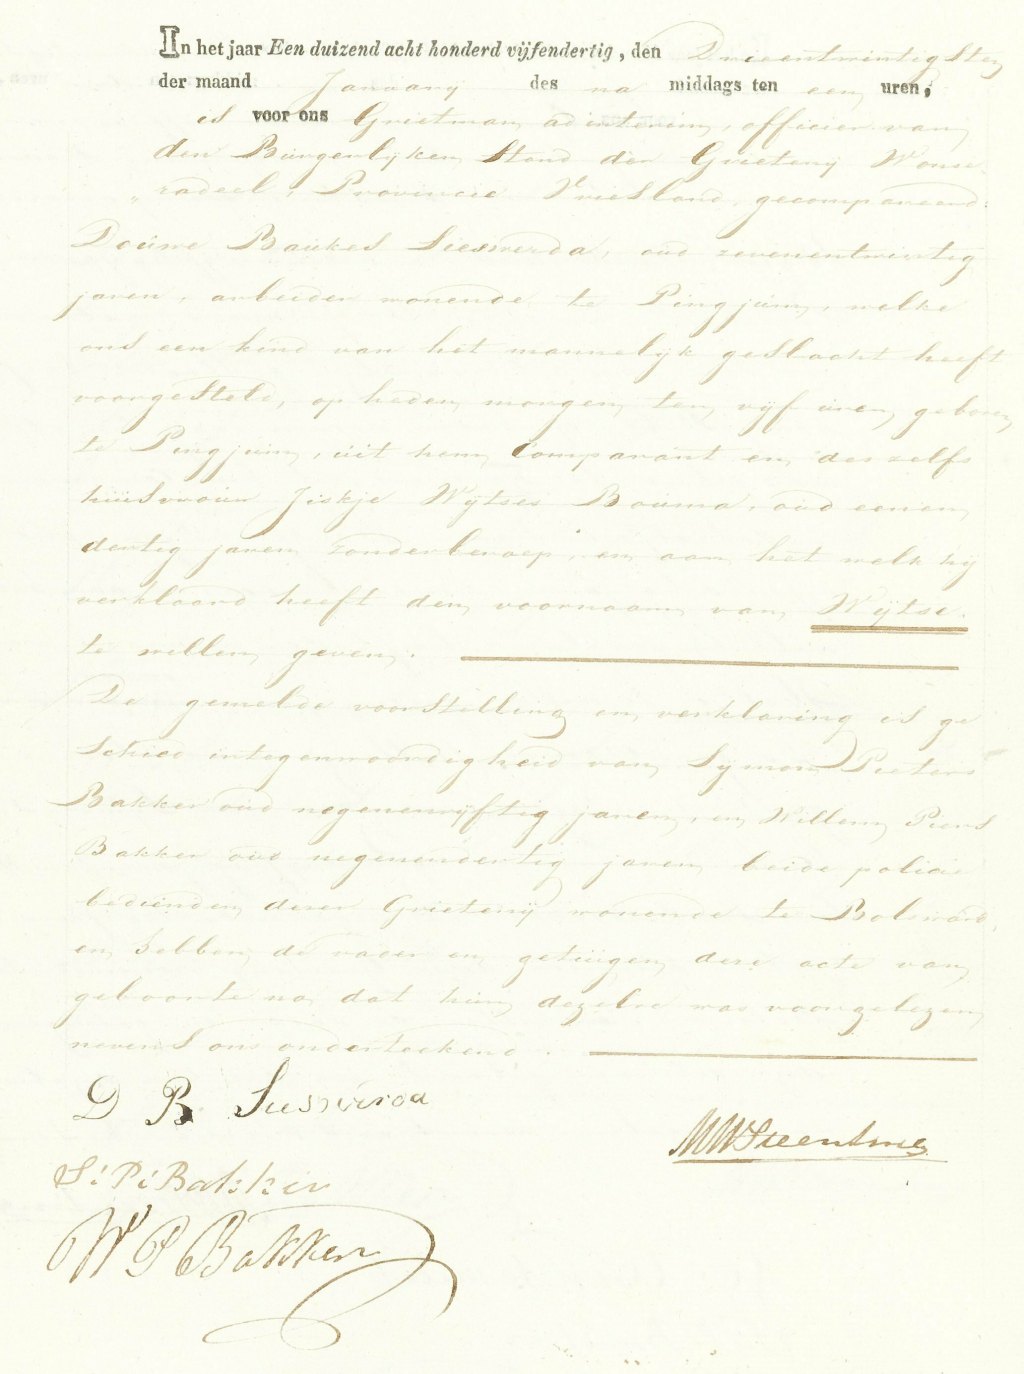 In het jaar Een duizend acht honderd vijfendertig, den Drieentwintigsten
der maand January des na middags ten een uren,
is voor ons Grietman ad interim, officier van
den Burgerlijken Stand der Grieteny Wonse
"radeel, Provincie Vriesland, gecompareerd:
Douwe Baukes Sieswerda, oud zevenentwintig
jaren, arbeider wonende te Pingjum, welke
ons een kind van het mannelijk geslacht heeft
voorgesteld, op heden morgen ten vijf uren, geboren
te Pingjum, uit hem Comparant en deszelfs
huisvrouw Jiskje Wytses Bouma, oud eenen
dertig jaren zonder beroep, en aan het welk hij
verklaard heeft den voornaam van Wijtse.
te willen geven.
De gemelde voorstelling en verklaring is ge
schied in tegenwoordigheid van Symon Pieters
Bakker oud negenenvijftig jaren, en Willem Piers
Bakker oud negenendertig jaren beide policie
bedienden dezer Grietenij wonende te Bolsward,
en hebben de vader en getuigen deze acte van
geboorte na dat hun dezelve was voorgelezen
nevens ons onderteekend.
D B Sieswerda
S: P: Bakker
W P Bakker